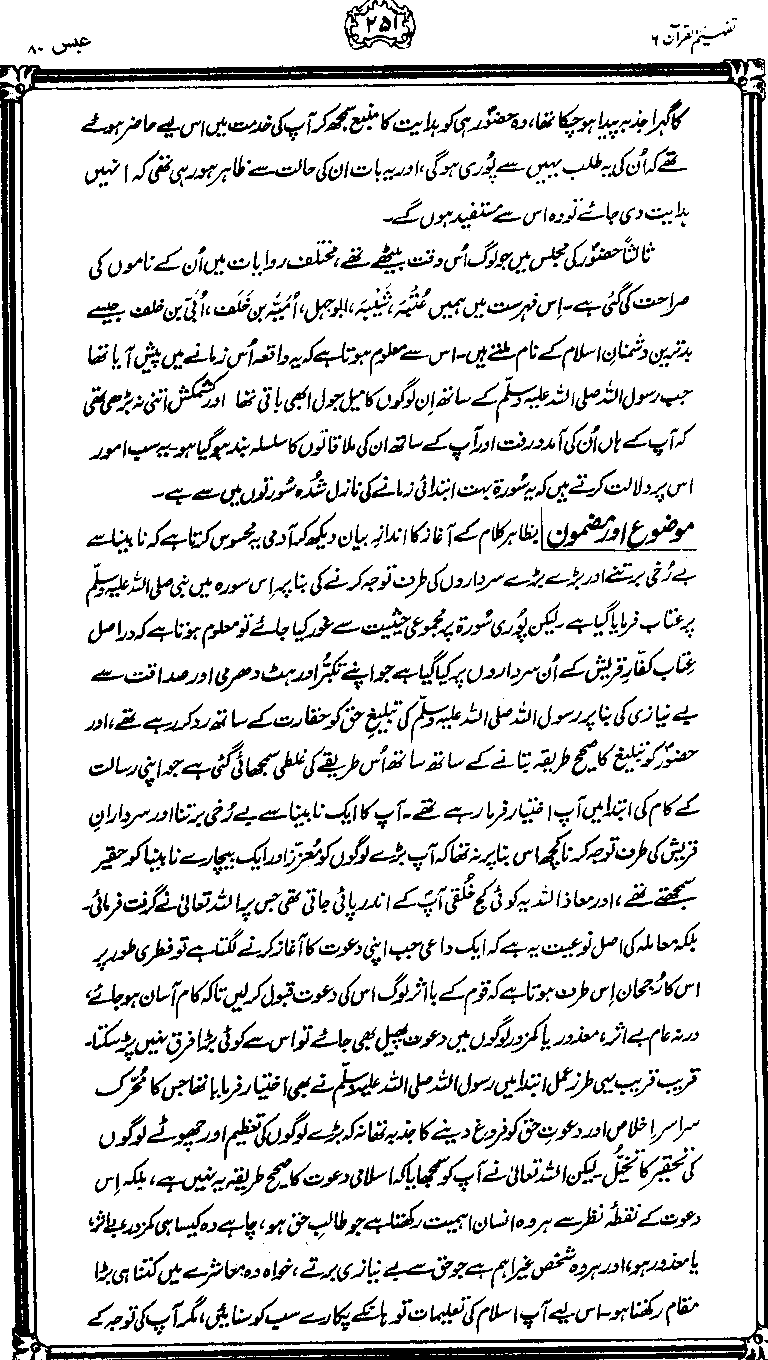 تفہیم القرآن ۶
۲۵۱
عبس ۸۰
کا گہرا جذبہ پیدا ہو چکا تھا، وہ حضورؐ ہی کو ہدایت کا منبع سمجھ کر آپ کی خدمت میں اس لیے حاضر ہوئے
تھے کہ اُن کی یہ طلب یہیں سے پوری ہوگی، اور یہ بات ان کی حالت سے ظاہر ہو رہی تھی کہ انہیں
ہدایت دی جائے تو وہ اس سے مستفید ہوں گے۔
ثالثاً حضورؐ کی مجلس میں جو لوگ اُس وقت بیٹھے تھے، مختلف روایات میں اُن کے ناموں کی
صراحت کی گئی ہے۔ اِس فہرست میں ہمیں عُتبہ، شَیبہ، ابو جہل، اُمیّہ بن خَلَف، اُبَیّ بن خلف جیسے
بدترین دشمنانِ اسلام کے نام ملتے ہیں۔ اس سے معلوم ہوتا ہے کہ یہ واقعہ اُس زمانے میں پیش آیا تھا
جب رسول اللہ صلی اللہ علیہ وسلّم کے ساتھ اِن لوگوں کا میل جول ابھی باقی تھا اور کشمکش اتنی نہ بڑھی تھی
کہ آپ کے ہاں اُن کی آمد و رفت اور آپ کے ساتھ ان کی ملاقاتوں کا سلسلہ بند ہو گیا ہو۔ یہ سب امور
اس پر دلالت کرتے ہیں کہ یہ سُورۃ بہت ابتدائی زمانے کی نازل شُدہ سُورتوں میں سے ہے۔
موضوع اور مضمون بظاہر کلام کے آغاز کا اندازِ بیان دیکھ کر آدمی یہ محسوس کرتا ہے کہ نابینا سے
بے رُخی برتنے اور بڑے بڑے سرداروں کی طرف توجہ کرنے کی بنا پر اِس سورہ میں نبی صلی اللہ علیہ وسلّم
پر عتاب فرمایا گیا ہے۔ لیکن پُوری سُورۃ پر مجموعی حیثیت سے غور کیا جائے تو معلوم ہوتا ہے کہ دراصل
عتاب کفّارِ قریش کے اُن سرداروں پر کیا گیا ہے جو اپنے تکبّر اور ہٹ دھرمی اور صداقت سے
بے نیازی کی بنا پر رسول اللہ صلی اللہ علیہ وسلّم کی تبلیغِ حق کو حقارت کے ساتھ رد کر رہے تھے، اور
حضورؐ کو تبلیغ کا صحیح طریقہ بتانے کے ساتھ ساتھ اُس طریقے کی غلطی سمجھائی گئی ہے جو اپنی رسالت
کے کام کی ابتدا میں آپ اختیار فرما رہے تھے۔ آپ کا ایک نابینا سے بے رُخی برتنا اور سردارانِ
قریش کی طرف توجہ کرنا کچھ اس بنا پر نہ تھا کہ آپ بڑے لوگوں کو مُعزّز اور ایک بیچارے نابینا کو حقیر
سمجھتے تھے، اور معاذ اللہ یہ کوئی کج خُلقی آپؐ کے اندر پائی جاتی تھی جس پر اللہ تعالیٰ نے گرفت فرمائی۔
بلکہ معاملہ کی اصل نوعیت یہ ہے کہ ایک داعی جب اپنی دعوت کا آغاز کرنے لگتا ہے تو فطری طور پر
اس کا رُجحان اِس طرف ہوتا ہے کہ قوم کے با اثر لوگ اس کی دعوت قبول کر لیں تاکہ کام آسان ہو جائے،
ورنہ عام بے اثر، معذور یا کمزور لوگوں میں دعوت پھیل بھی جائے تو اس سے کوئی بڑا فرق نہیں پڑ سکتا۔
قریب قریب یہی طرزِ عمل ابتدا میں رسول اللہ صلی اللہ علیہ وسلّم نے بھی اختیار فرمایا تھا جس کا مُحرّک
سراسر اِخلاص اور دعوتِ حق کو فروغ دینے کا جذبہ تھا نہ کہ بڑے لوگوں کی تعظیم اور چھوٹے لوگوں
کی تحقیر کا تخیُّل۔ لیکن اللہ تعالیٰ نے آپ کو سمجھایا کہ اسلامی دعوت کا صحیح طریقہ یہ نہیں ہے، بلکہ اِس
دعوت کے نقطۂ نظر سے ہر وہ انسان اہمیت رکھتا ہے جو طالبِ حق ہو، چاہے وہ کیسا ہی کمزور، بے اثر،
یا معذور ہو، اور ہر وہ شخص غیر اہم ہے جو حق سے بے نیازی برتے، خواہ وہ معاشرے میں کتنا ہی بڑا
مقام رکھتا ہو۔ اس لیے آپ اسلام کی تعلیمات تو ہانکے پکارے سب کو سنائیں، مگر آپ کی توجہ کے